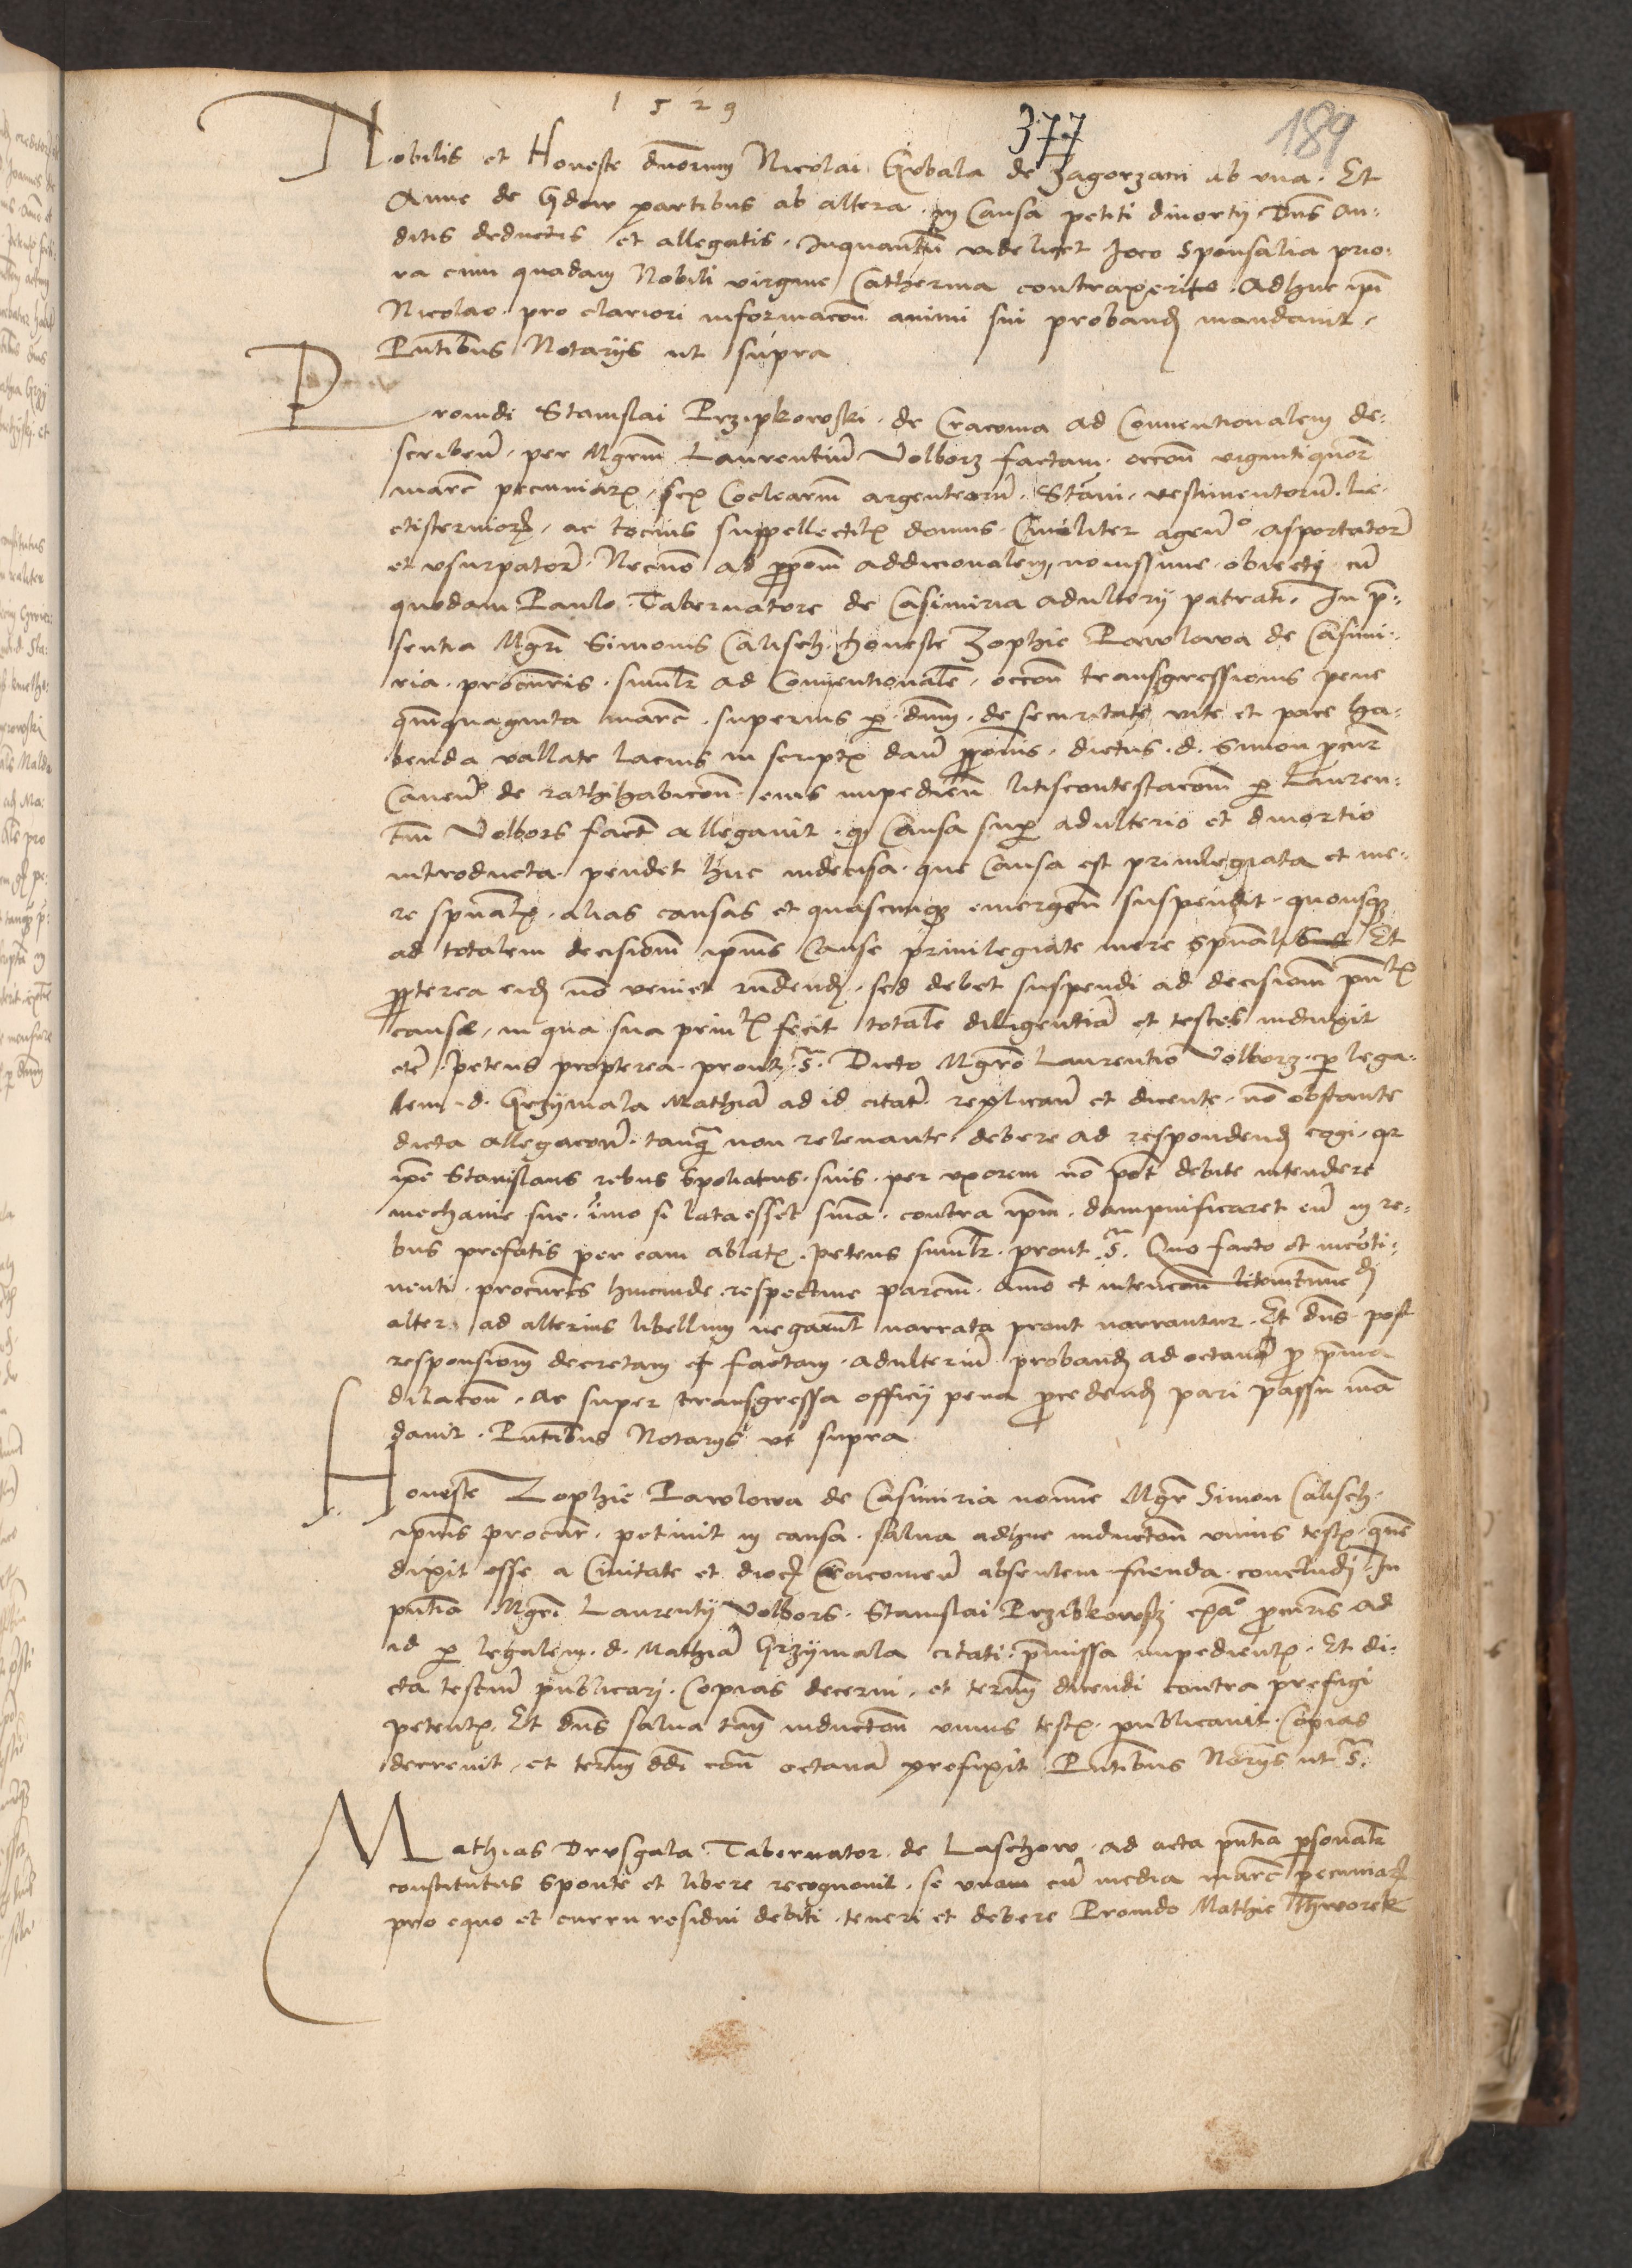 1529
377
189
Nobilis et Honeste duorum Nicolai Gybala de Zagorzani ab vna. Et
Anne de Gdow partibus ab altera. in Causa petiti diuorty Dns au-
ditis deductis et allegatis. Inquantum videlicet Joco sponsalia prio-
ra cum quadam Nobili virgine Catherina contraxerit. Adhuc ipi
Nicolao. pro clariori informacon animi sui proband mandauit.
Pntibus Notarys ut supra
Prouidi Stanislai Przipkowski. de Cracouia ad Conuentionalem de-
scriben. per Mgrm Laurentiu Volborz factam. occon viginti quor
marc pecuniar, sex Coclearium argenteoru. Stani. vestimentoru. le-
ctisternior, ac tocius suppellectil domus. Ciuiliter agen asportator
et vsurpator. Necno ad ppom addicionalem, nouissime. obiecti cu
quodam Paulo. Tabernatore de Casimiria adultery patrati. In p-
sentia Mgri Simonis Calisch. honeste Zophie Pawlowa de Casimi-
ria. procuris. similr ad Conuentionale. occon transgressionis pene
quinquaginta marc. superius p dnm. de securitate vite et pace ha-
benda vallate lacius in script dan pponis. dictus. d. Simon procur
Cauen de rathihabicon eius impedien litiscontestacom p Lauren-
tiu Volbors fact allegauit. q Causa sup adulterio et diuortio
introducta. pendet huc indecisa. que Causa est priuilegiata et me-
re spual. alias causas et quascunq emergen suspendit. quousq
ad totalem decisiom ipius Cause priuilegiate mere spual Et
ppterea eid no veniet rndend. sed debet suspendi ad decisiom pnt
cause, in qua sua prin fecit totale diligentia et testes induxit
etc. Petens propterea. prout s. Dicto Mgro Laurentio Volborz. p lega-
lem. d. Grzymala Mathia ad id citat. replican et dicente. no obstante
dicta allegacon. tanq non releuante. debere ad respondend cogi. qr
ipe Stanislaus rebus spoliatus. suis. per vxorem no pot debite intendere
mechanie sue. imo si lata esset snia. contra ipm. dampnificaret eu in re-
bus prefatis per eam ablat. petens similr. prout s. Quo facto et incoti-
nenti. procures hincinde respectiue parcium. animo et intencon
alter. ad alterius libellum negarunt narrata prout narrantur. Et dns. post
responsiom decretam et factam. adulteriu proband ad octaua p pma
dilacon. Ac super transgressa officy pena procedend pari passu man
dauit. Pntibus Notarys ut supra
Honeste Zophie Pawlowa de Casimiria nomine Mgr Simon Calisch.
ipius procur. petiuit in causa. salua adhuc inducton vnius test. quem
dixit esse a Ciuitate et dioc Cracouien absentem fienda. concludi In
pntia Mgri Laurenty Volbors. Stanislai Przibkowsky procuris ad
id p legalem. d. Mathia Grzymala citati. pmissa impedient. Et di-
cta testium publicari. Copias decerni, et termm dicendi contra prefigi
petent. Et dns salua tam inducton vnius test. publicauit. Copias
decreuit, et termm ddi con octaua prefixit Pntibus Norys ut s.
Mathias Drvsgala Tabernator. de Laschow. ad acta pntia psonalr
constitutus sponte et libere recognouit. se vnam cu media marc pecuniar
pro equo et curru residui debiti. teneri et debere Prouido Mathie